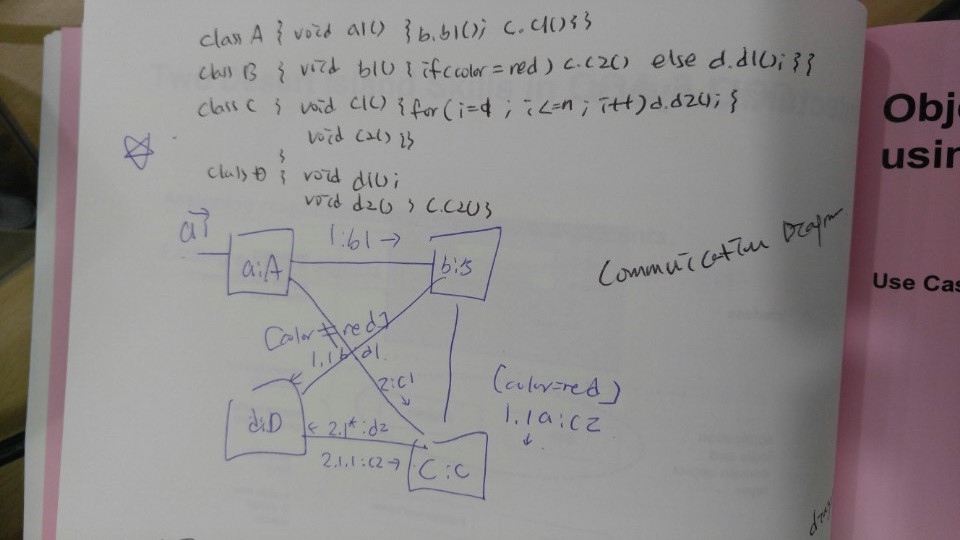 class A { void a1() { b.b1(); c.c1()}}
class B { void b1() { if(color=red) c.c2() else d.d1(); }}
class C { void c1() { for(i=1; i<=n; i++) d.d2(); }
void c2() }}
}
class D { void d1();
void d2() } c.c2()}
a1
1:b1 →
a:A
b:B
Communication
[color≠red]
1.1b:d1
2:c1
[color=red]
1.1a:c2
d:D
← 2.1*:d2
2.1.1:c2→
C:C
Obj
usin
Use Cas